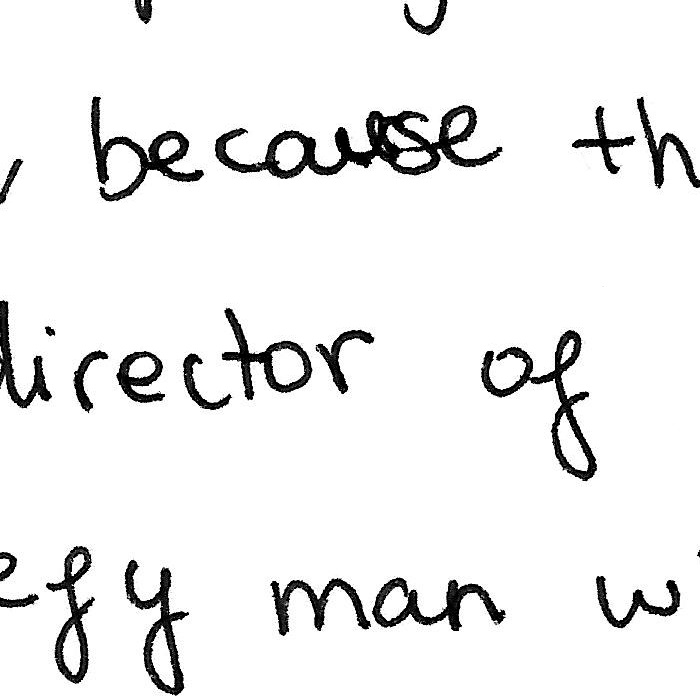 , because th
director of
efy man wi